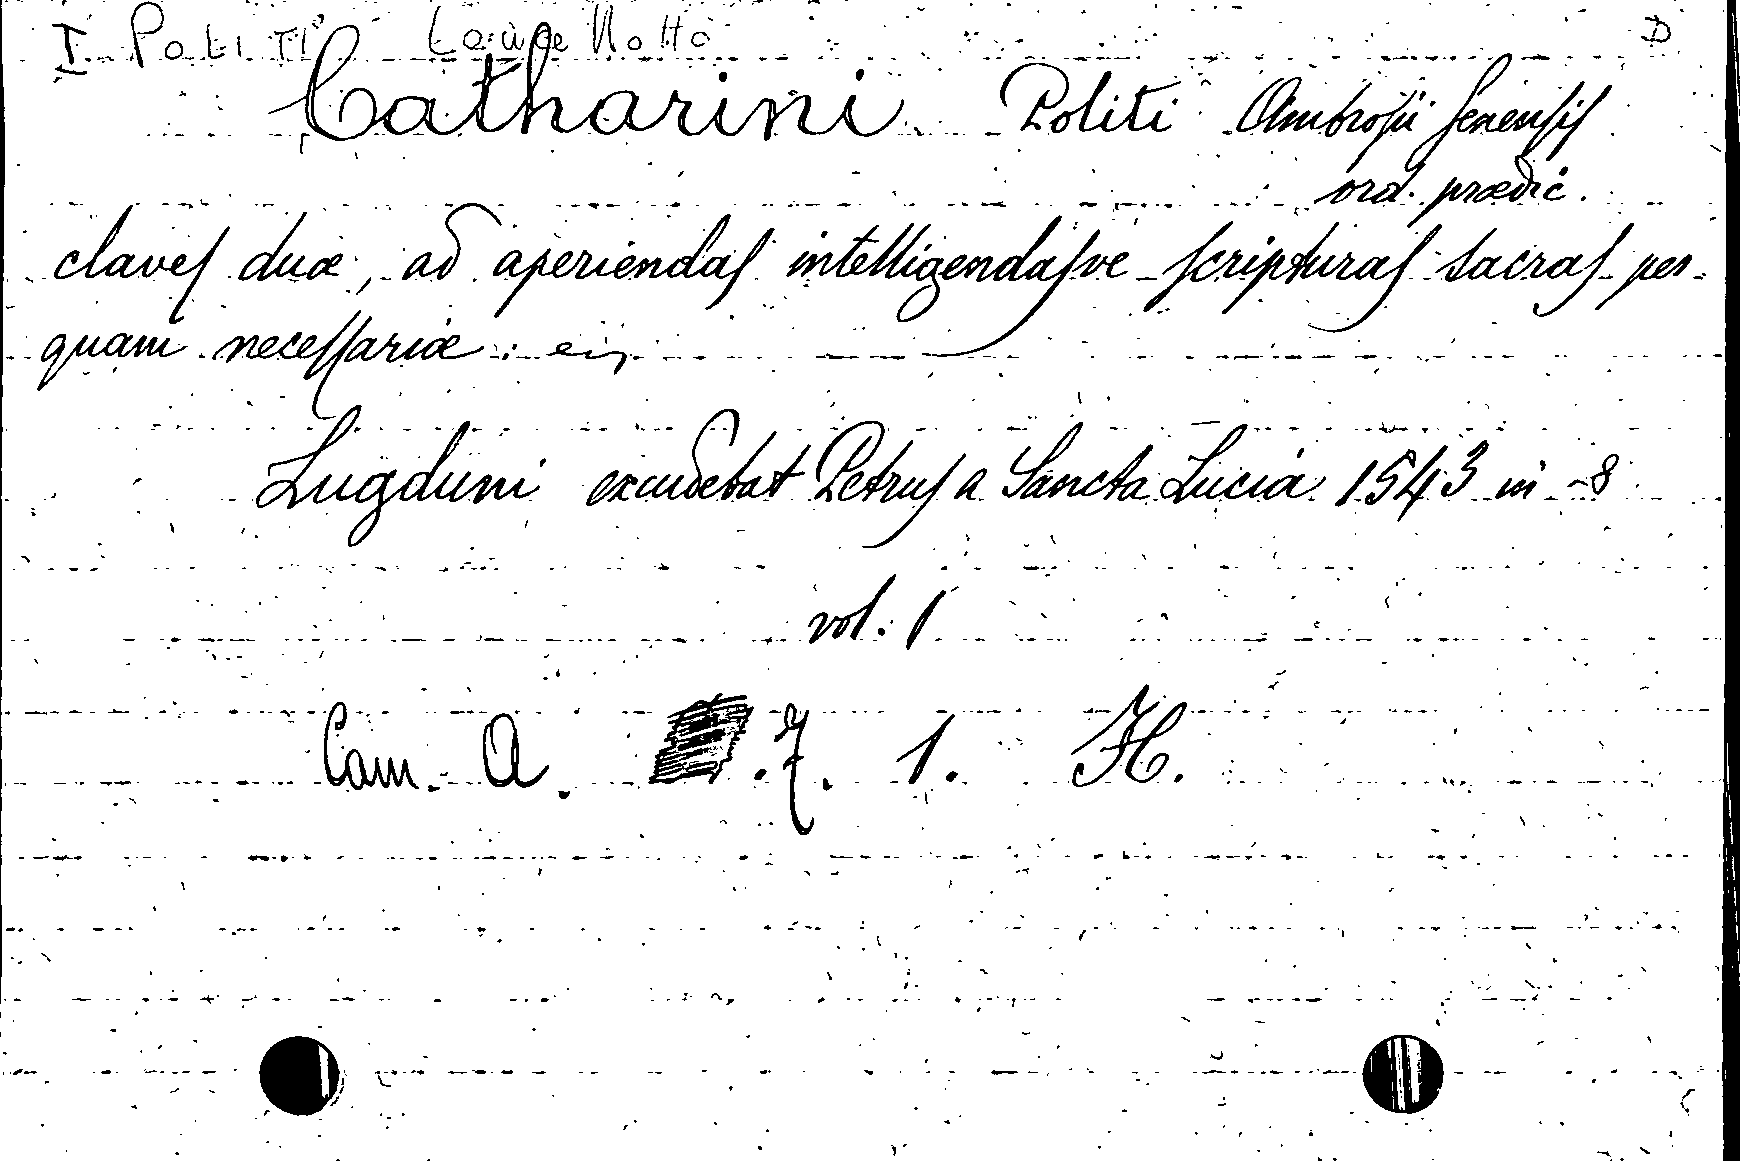 I POLITI Lancellotto D
Catharini Politi Ambrosii Senensis
ord. prædic.
claves duæ, ad aperiendas intelligendasve scripturas sacras per-
quam necessariæ:
Lugduni excudebat Petrus a Sancta Lucia 1543 in-8
vol. 1
Cam. A. .7. 1. H.